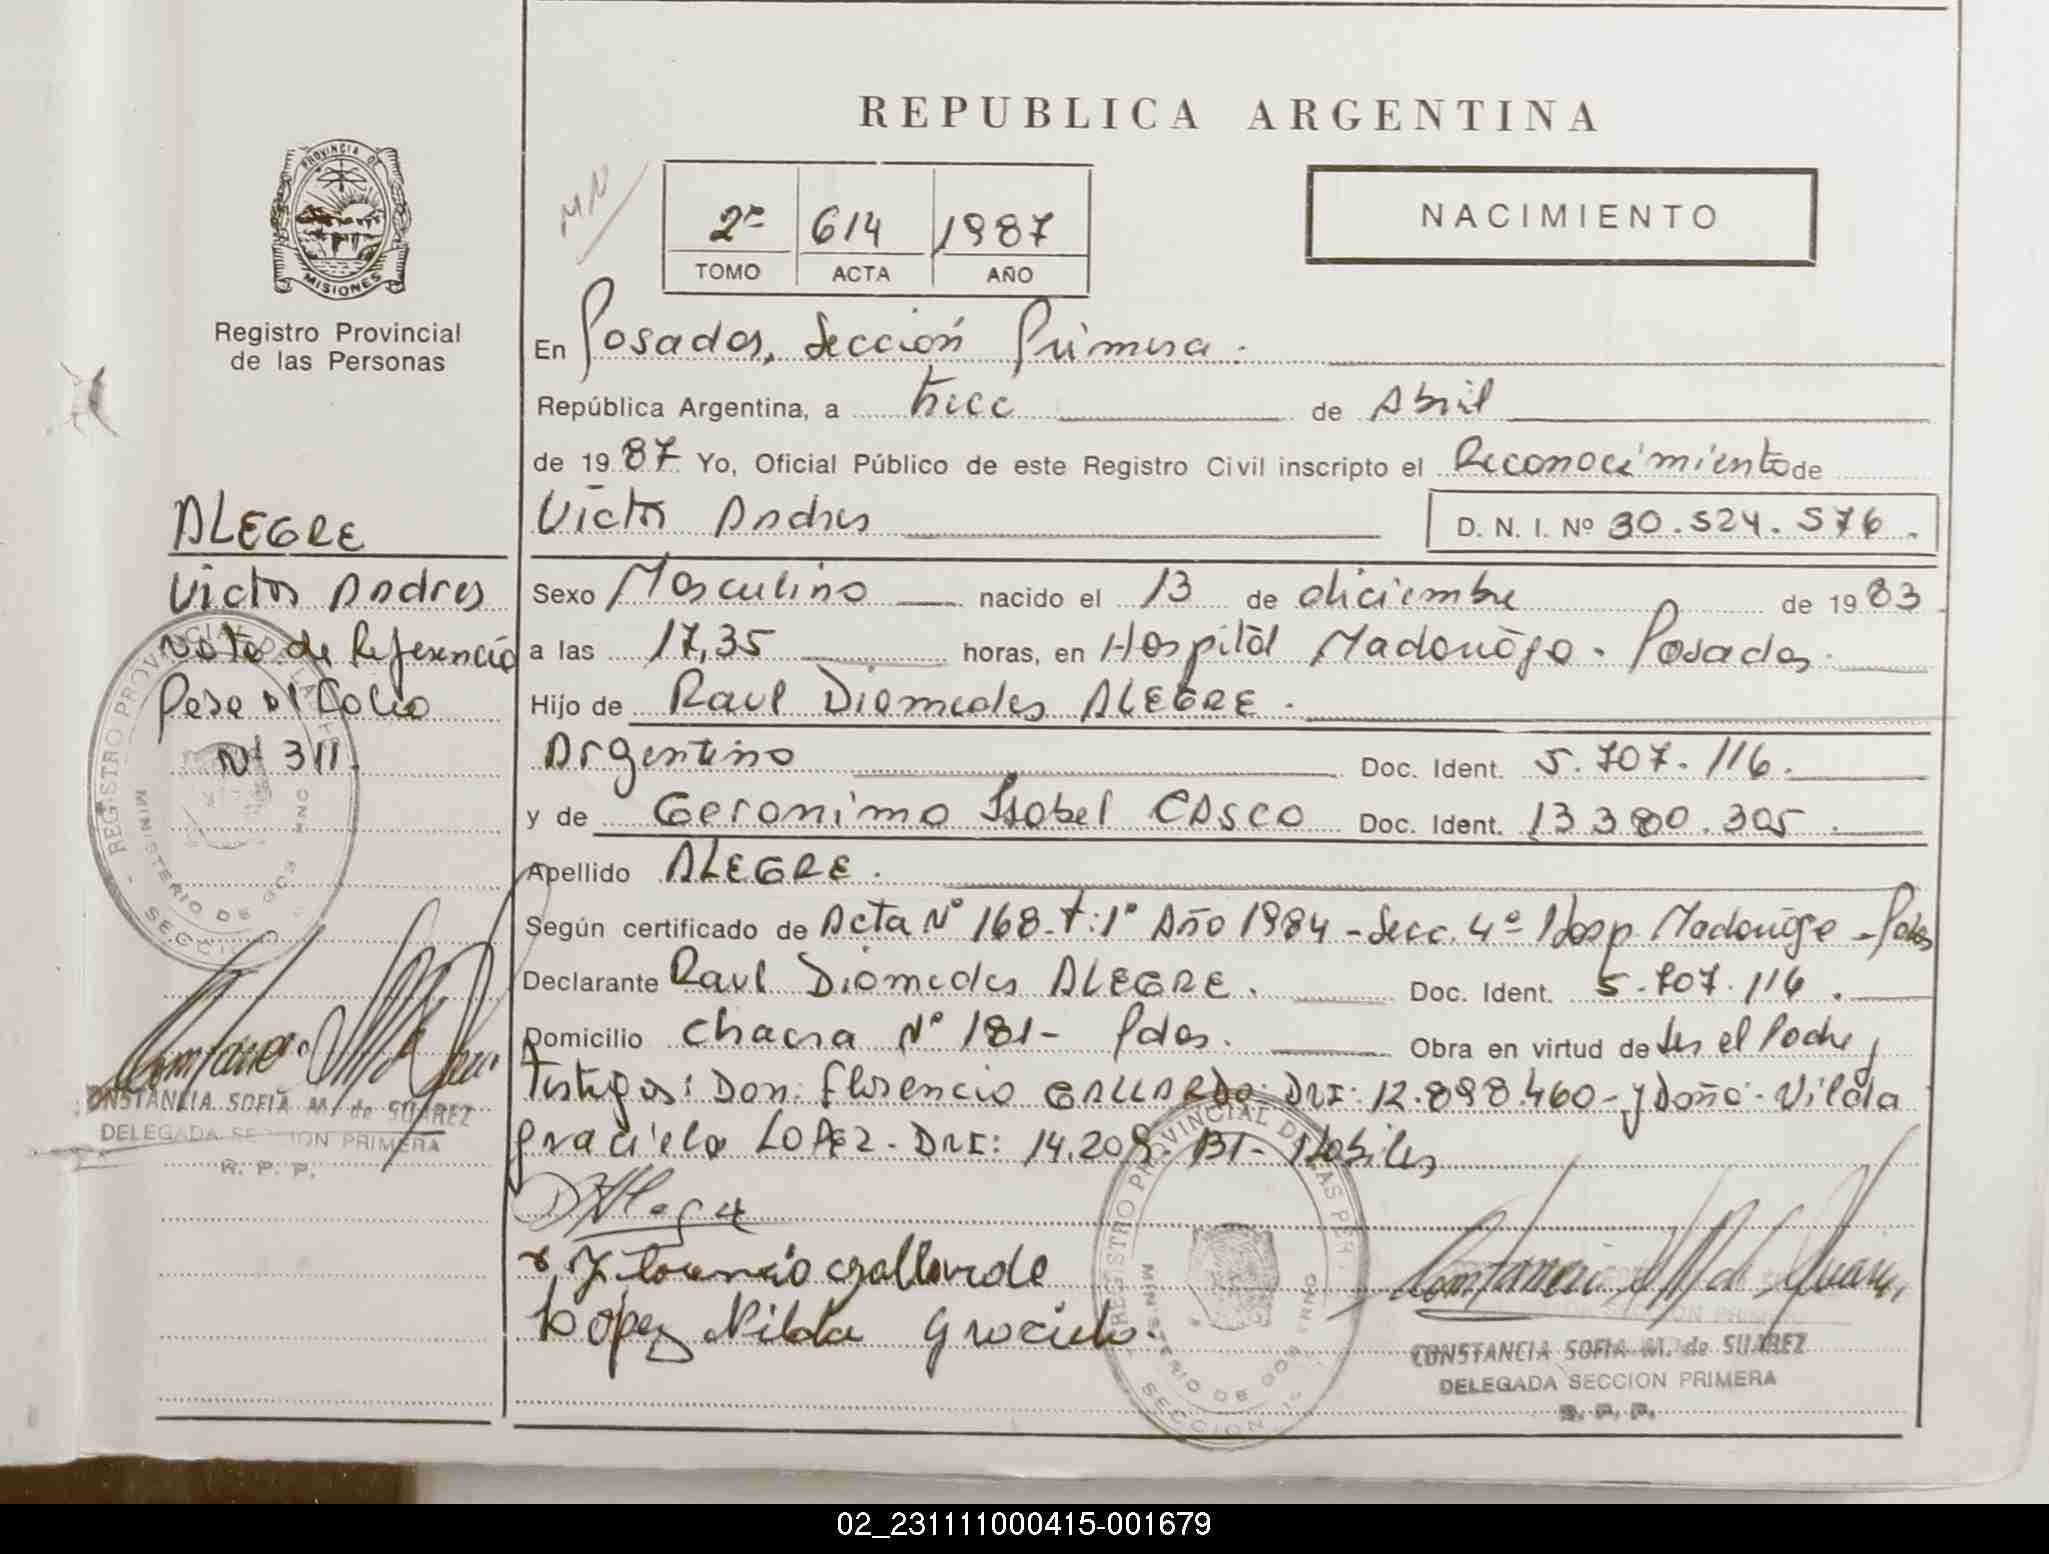 REPUBLICA ARGENTINA
PROVINCIA DE
MISIONES
Registro Provincial
de las Personas
MN
2º 614 1987
TOMO ACTA AÑO
NACIMIENTO
En Posadas, Sección Primera.
República Argentina, a trece de Abril
de 1987 Yo, Oficial Público de este Registro Civil inscripto el Reconocimiento de
Victor Andres D. N. I. Nº 30.524.576.
Sexo Masculino nacido el 13 de diciembre de 1983
a las 17,35 horas, en Hospital Madariaga - Posadas.
Hijo de Raul Diomedes ALEGRE.
Argentino Doc. Ident. 5.707.116.
y de Geronima Isabel CASCO Doc. Ident. 13.380.305.
Apellido ALEGRE.
Según certificado de Acta Nº 168-t:1º Año 1984-Secc. 4º Hosp. Madariaga - Pdas
Declarante Raul Diomedes ALEGRE. Doc. Ident. 5.707.116.
Domicilio Chacra Nº 181- Pdas. Obra en virtud de ser el Padre,
Testigos: Don: Florencio GALLARDO: DNI: 12.898.460-y Doña: Nilda
Graciela LOPEZ- DNI: 14.209.131- Habiles
Florencio Gallardo
Lopez Nilda Graciela.
CONSTANCIA SOFIA M. de SUAREZ
DELEGADA SECCION PRIMERA
R. P. P.
ALEGRE
Victor Andres
Nota de Referencia
Pasa al Folio
Nº 311.
CONSTANCIA SOFIA M. de SUAREZ
DELEGADA SECCION PRIMERA
R. P. P.
02_231111000415-001679